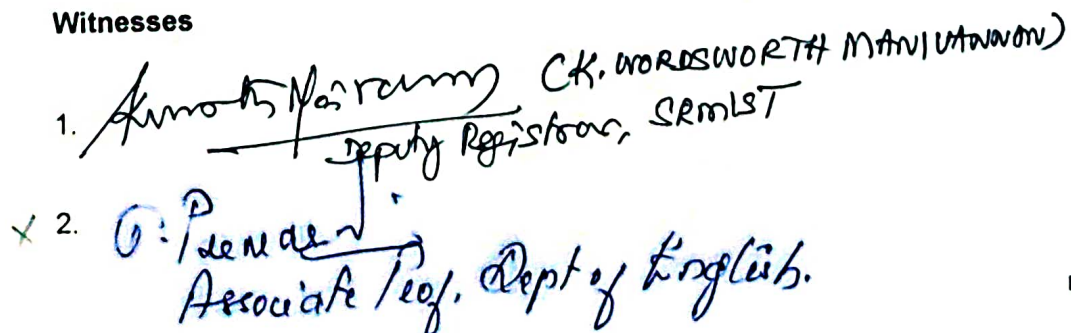 Witnesses
1. (K. WORDSWORTH MANIVANNAN)
Deputy Registrar, SRMIST
x 2.
Associate Prof. Dept of English.